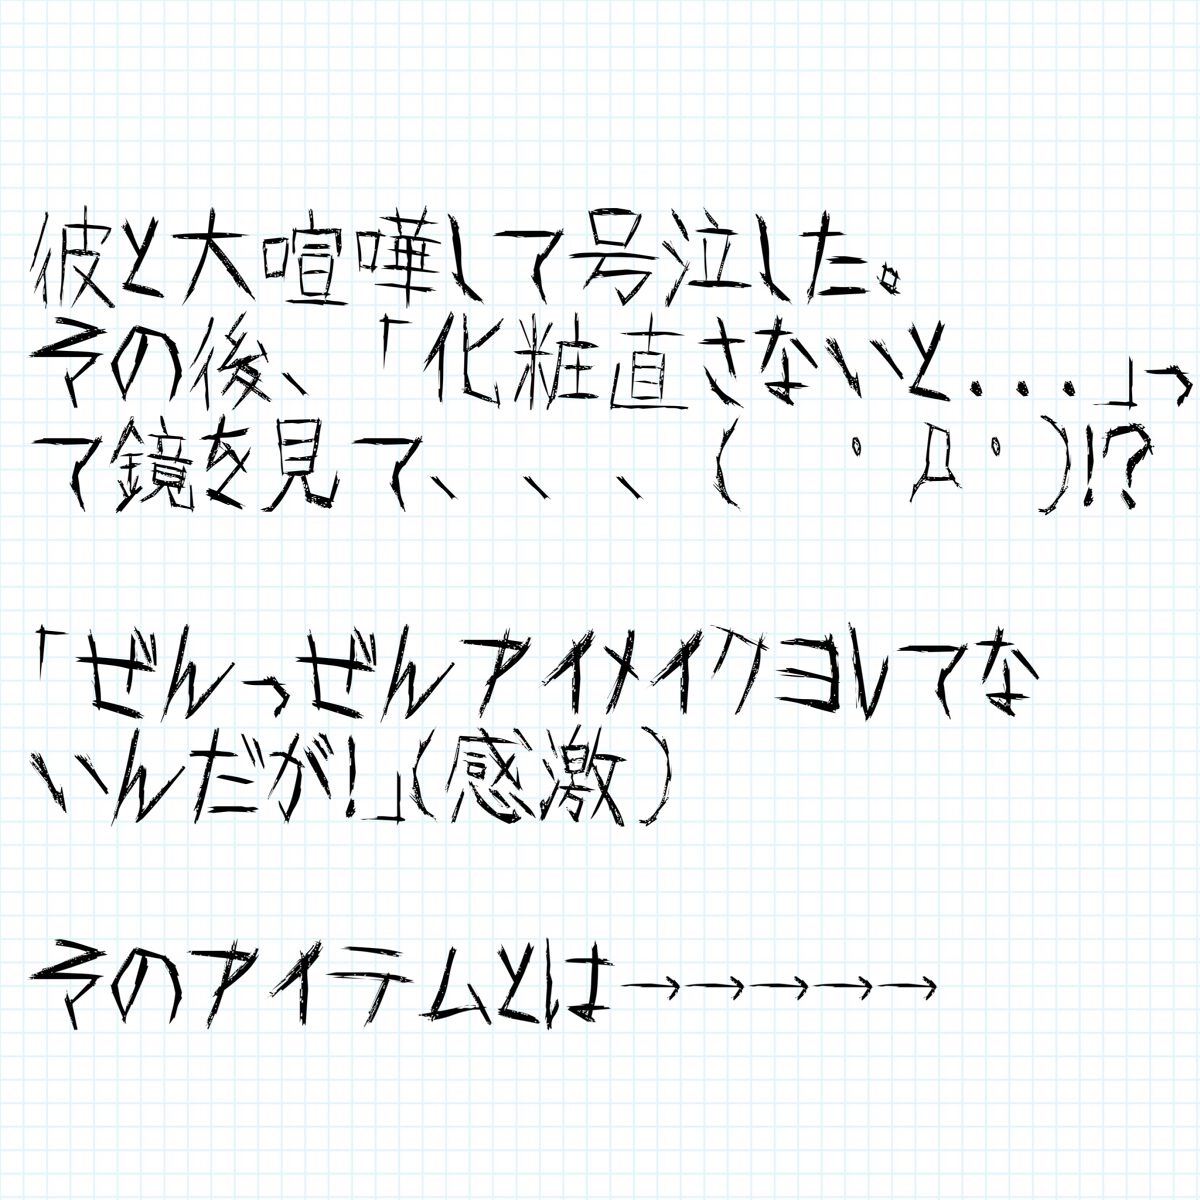 彼と大喧嘩して号泣した。
その後、「化粧直さないと...」っ
て鏡を見て、、、( ゚Д゚)!?
「ぜんっぜんアイメイクヨレてな
いんだが!」(感激)
そのアイテムとは→→→→→